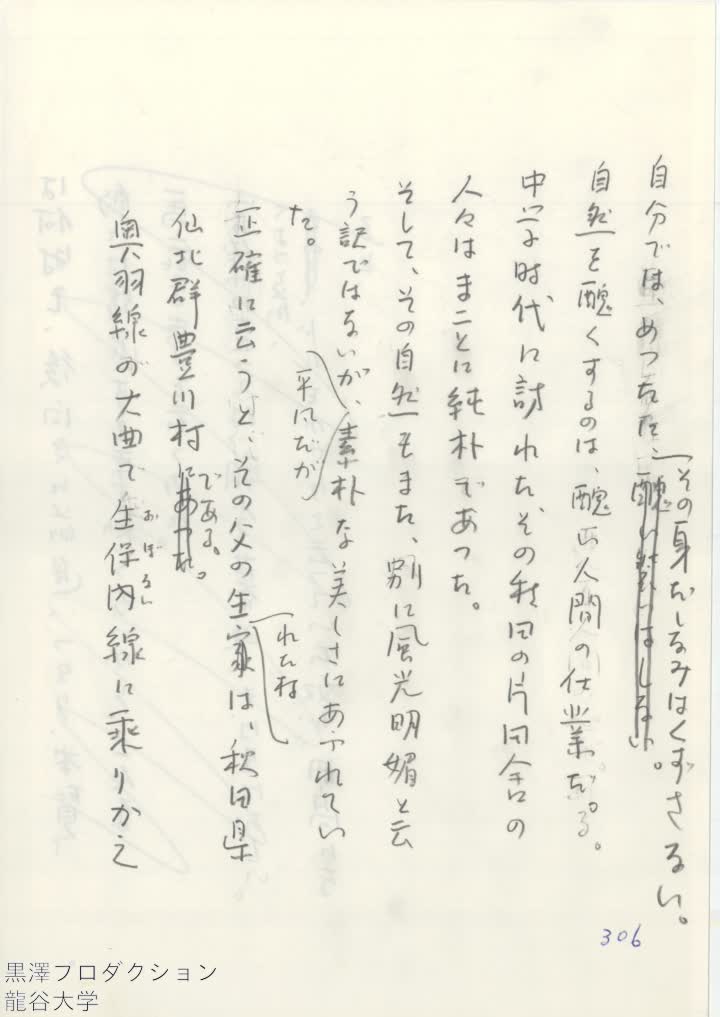 自分では、めつたに、醜い姿はしない。
その身だしなみはくずさない。
自然を醜くするのは、醜い人間の仕業だ。
中学時代に訪れた、その秋田の片田舎の
人々はまことに純朴であつた。
そして、その自然もまた、別に風光明媚と云
う訳ではないが、素朴な美しさにあふれてい
平凡だが
た。
正確に云うと、その父の生家は、秋田県
れた村
仙北群豊川村にあつた。
である。
奥羽線の大曲で生保内線に乗りかえ
おぼない
306
黒澤プロダクション
龍谷大学